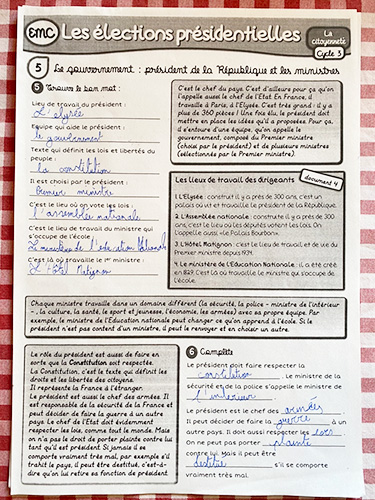 EMC
Les élections présidentielles
La citoyenneté
Cycle 3
5 Le gouvernement : président de la République et les ministres
5 Trouve le bon mot :
Lieu de travail du président :
L'elysée
Equipe qui aide le président :
le gouvernement
Texte qui définit les lois et libertés du
peuple :
la constitution
Il est choisi par le président :
Premier ministre
C'est le lieu où on vote les lois :
l'assemblée nationale
C'est le lieu de travail du ministre qui
s'occupe de l'école :
Le ministère de l'education Nationale
C'est là où travaille le 1er ministre :
L'Hôtel Matignon
C'est le chef du pays. C'est d'ailleurs pour ça qu'on
l'appelle aussi le chef de l'Etat. En France, il
travaille à Paris, à l'Elysée. C'est très grand : il y a
plus de 360 pièces ! Une fois élu, le président doit
mettre en place les idées qu'il a proposées. Pour ça,
il s'entoure d'une équipe, qu'on appelle le
gouvernement, composé du Premier ministre
(choisi par le président) et de plusieurs ministres
(sélectionnés par le Premier ministre).
Les lieux de travail des dirigeants
document 4
1. L'Elysée : construit il y a près de 300 ans, c'est un
palais où vit et travaille le président de la République.
2. L'Assemblée nationale : construite il y a près de 300
ans, c'est le lieu où les députés votent les lois. On
l'appelle aussi «le Palais Bourbon».
3. L'Hôtel Matignon : c'est le lieu de travail et de vie du
Premier ministre depuis 1934.
4. Le ministère de l'Education Nationale : il a été créé
en 1829. C'est là où travaille le ministre qui s'occupe
de l'école.
Chaque ministre travaille dans un domaine différent (la sécurité, la police - ministre de l'intérieur
- , la culture, la santé, le sport et jeunesse, l'économie, les armées) avec sa propre équipe. Par
exemple, le ministre de l'Education nationale peut changer ce qu'on apprend à l'école. Si le
président n'est pas content d'un ministre, il peut le renvoyer et en choisir un autre.
Le rôle du président est aussi de faire en
sorte que la Constitution soit respectée.
La Constitution, c'est le texte qui définit les
droits et les libertés des citoyens.
Il représente la France à l'étranger.
Le président est aussi le chef des armées. Il
est responsable de la sécurité de la France et
peut décider de faire la guerre à un autre
pays. Le chef de l'Etat doit évidemment
respecter les lois, comme tout le monde. Mais
on n'a pas le droit de porter plainte contre lui
tant qu'il est président. Si jamais il se
comporte vraiment très mal, par exemple s'il
trahit le pays, il peut être destitué, c'est-à-
dire qu'on lui retire sa fonction de président.
6 Complète
Le président doit faire respecter la
constitution. Le ministre de la
sécurité et de la police s'appelle le ministre de
l'interieur.
Le président est le chef des armées
Il peut décider de faire la guerre à un
autre pays. Il doit aussi respecter les lois
On ne peut pas porter plainte
contre lui. Mais il peut être
destitué s'il se comporte
vraiment très mal.